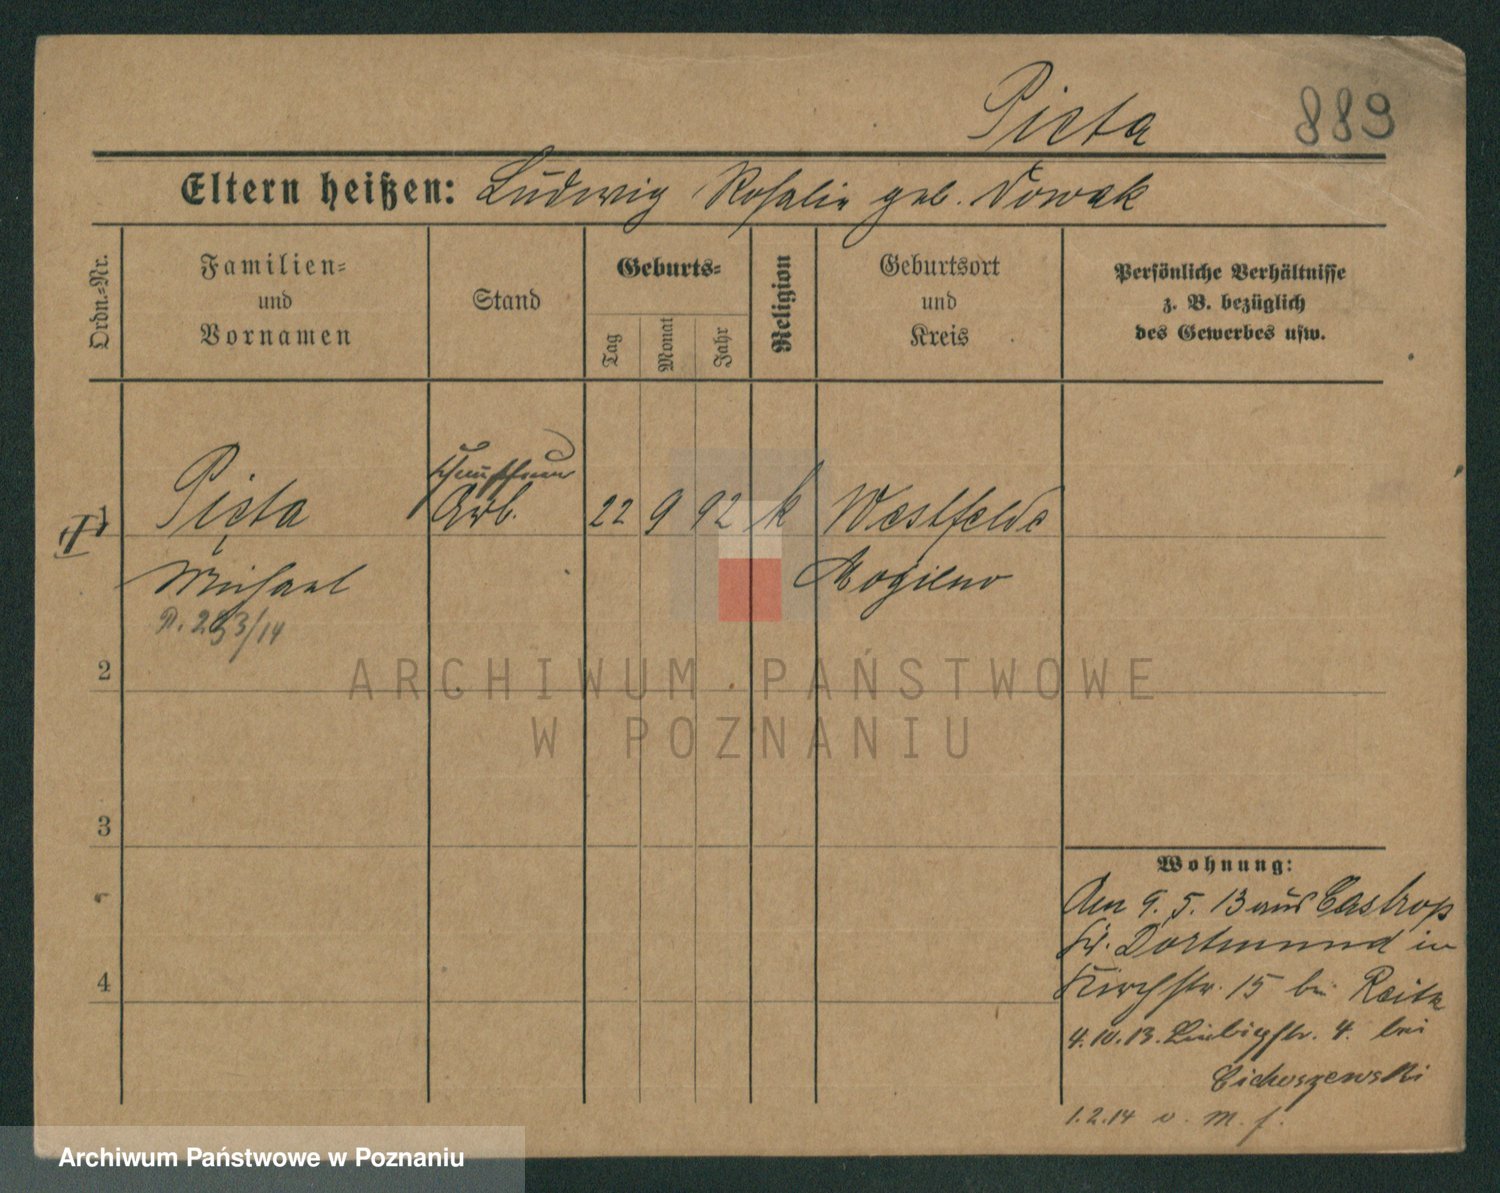 Picta
889
Eltern heißen: Ludwig Rosalie geb. Nowak
Ordn.-Nr.
Familien-
und
Vornamen
Stand
Geburts-
Tag
Monat
Jahr
Religion
Geburtsort
und
Kreis
Persönliche Verhältnisse
z. B. bezüglich
des Gewerbes usw.
1
Picta
Arb.
22
9
92
k
Westfelde
Michael
Mogilno
2
3
4
Wohnung:
Am 9. 5. 13 aus Castrop
Kr. Dortmund in
Kirchstr. 15 bei
4.10.13. Liebigstr. 4. bei
Cichoszewski
1.2.14 v. M. f.
ARCHIWUM PAŃSTWOWE
W POZNANIU
Archiwum Państwowe w Poznaniu